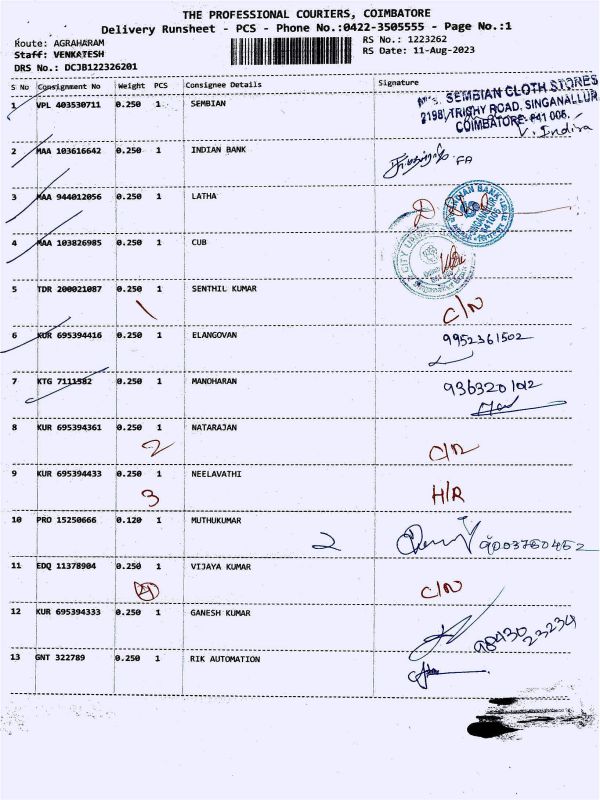 THE PROFESSIONAL COURIERS, COIMBATORE
Delivery Runsheet - PCS - Phone No.:0422-3505555 - Page No.:1
Route: AGRAHARAM
RS No.: 1223262
Staff: VENKATESH
RS Date: 11-Aug-2023
DRS No.: DCJB122326201
S No Consignment No Weight PCS Consignee Details Signature
1 VPL 403530711 0.250 1 SEMBIAN
SEMBIAN CLOTH STORES
2198, TRICHY ROAD, SINGANALLUR,
COIMBATORE-641 005.
V. Indira
2 MAA 103616642 0.250 1 INDIAN BANK
FA
3 MAA 944012056 0.250 1 LATHA
4 MAA 103826985 0.250 1 CUB
5 TDR 200021087 0.250 1 SENTHIL KUMAR
1 C/N
6 KUR 695394416 0.250 1 ELANGOVAN
9952361502
7 KTG 7111582 0.250 1 MANOHARAN
9363201012
8 KUR 695394361 0.250 1 NATARAJAN
2 C/N
9 KUR 695394433 0.250 1 NEELAVATHI
3 H/R
10 PRO 15250666 0.120 1 MUTHUKUMAR
2 9003750452
11 EDQ 11378904 0.250 1 VIJAYA KUMAR
4 C/N
12 KUR 695394333 0.250 1 GANESH KUMAR
98430 23234
13 GNT 322789 0.250 1 RIK AUTOMATION